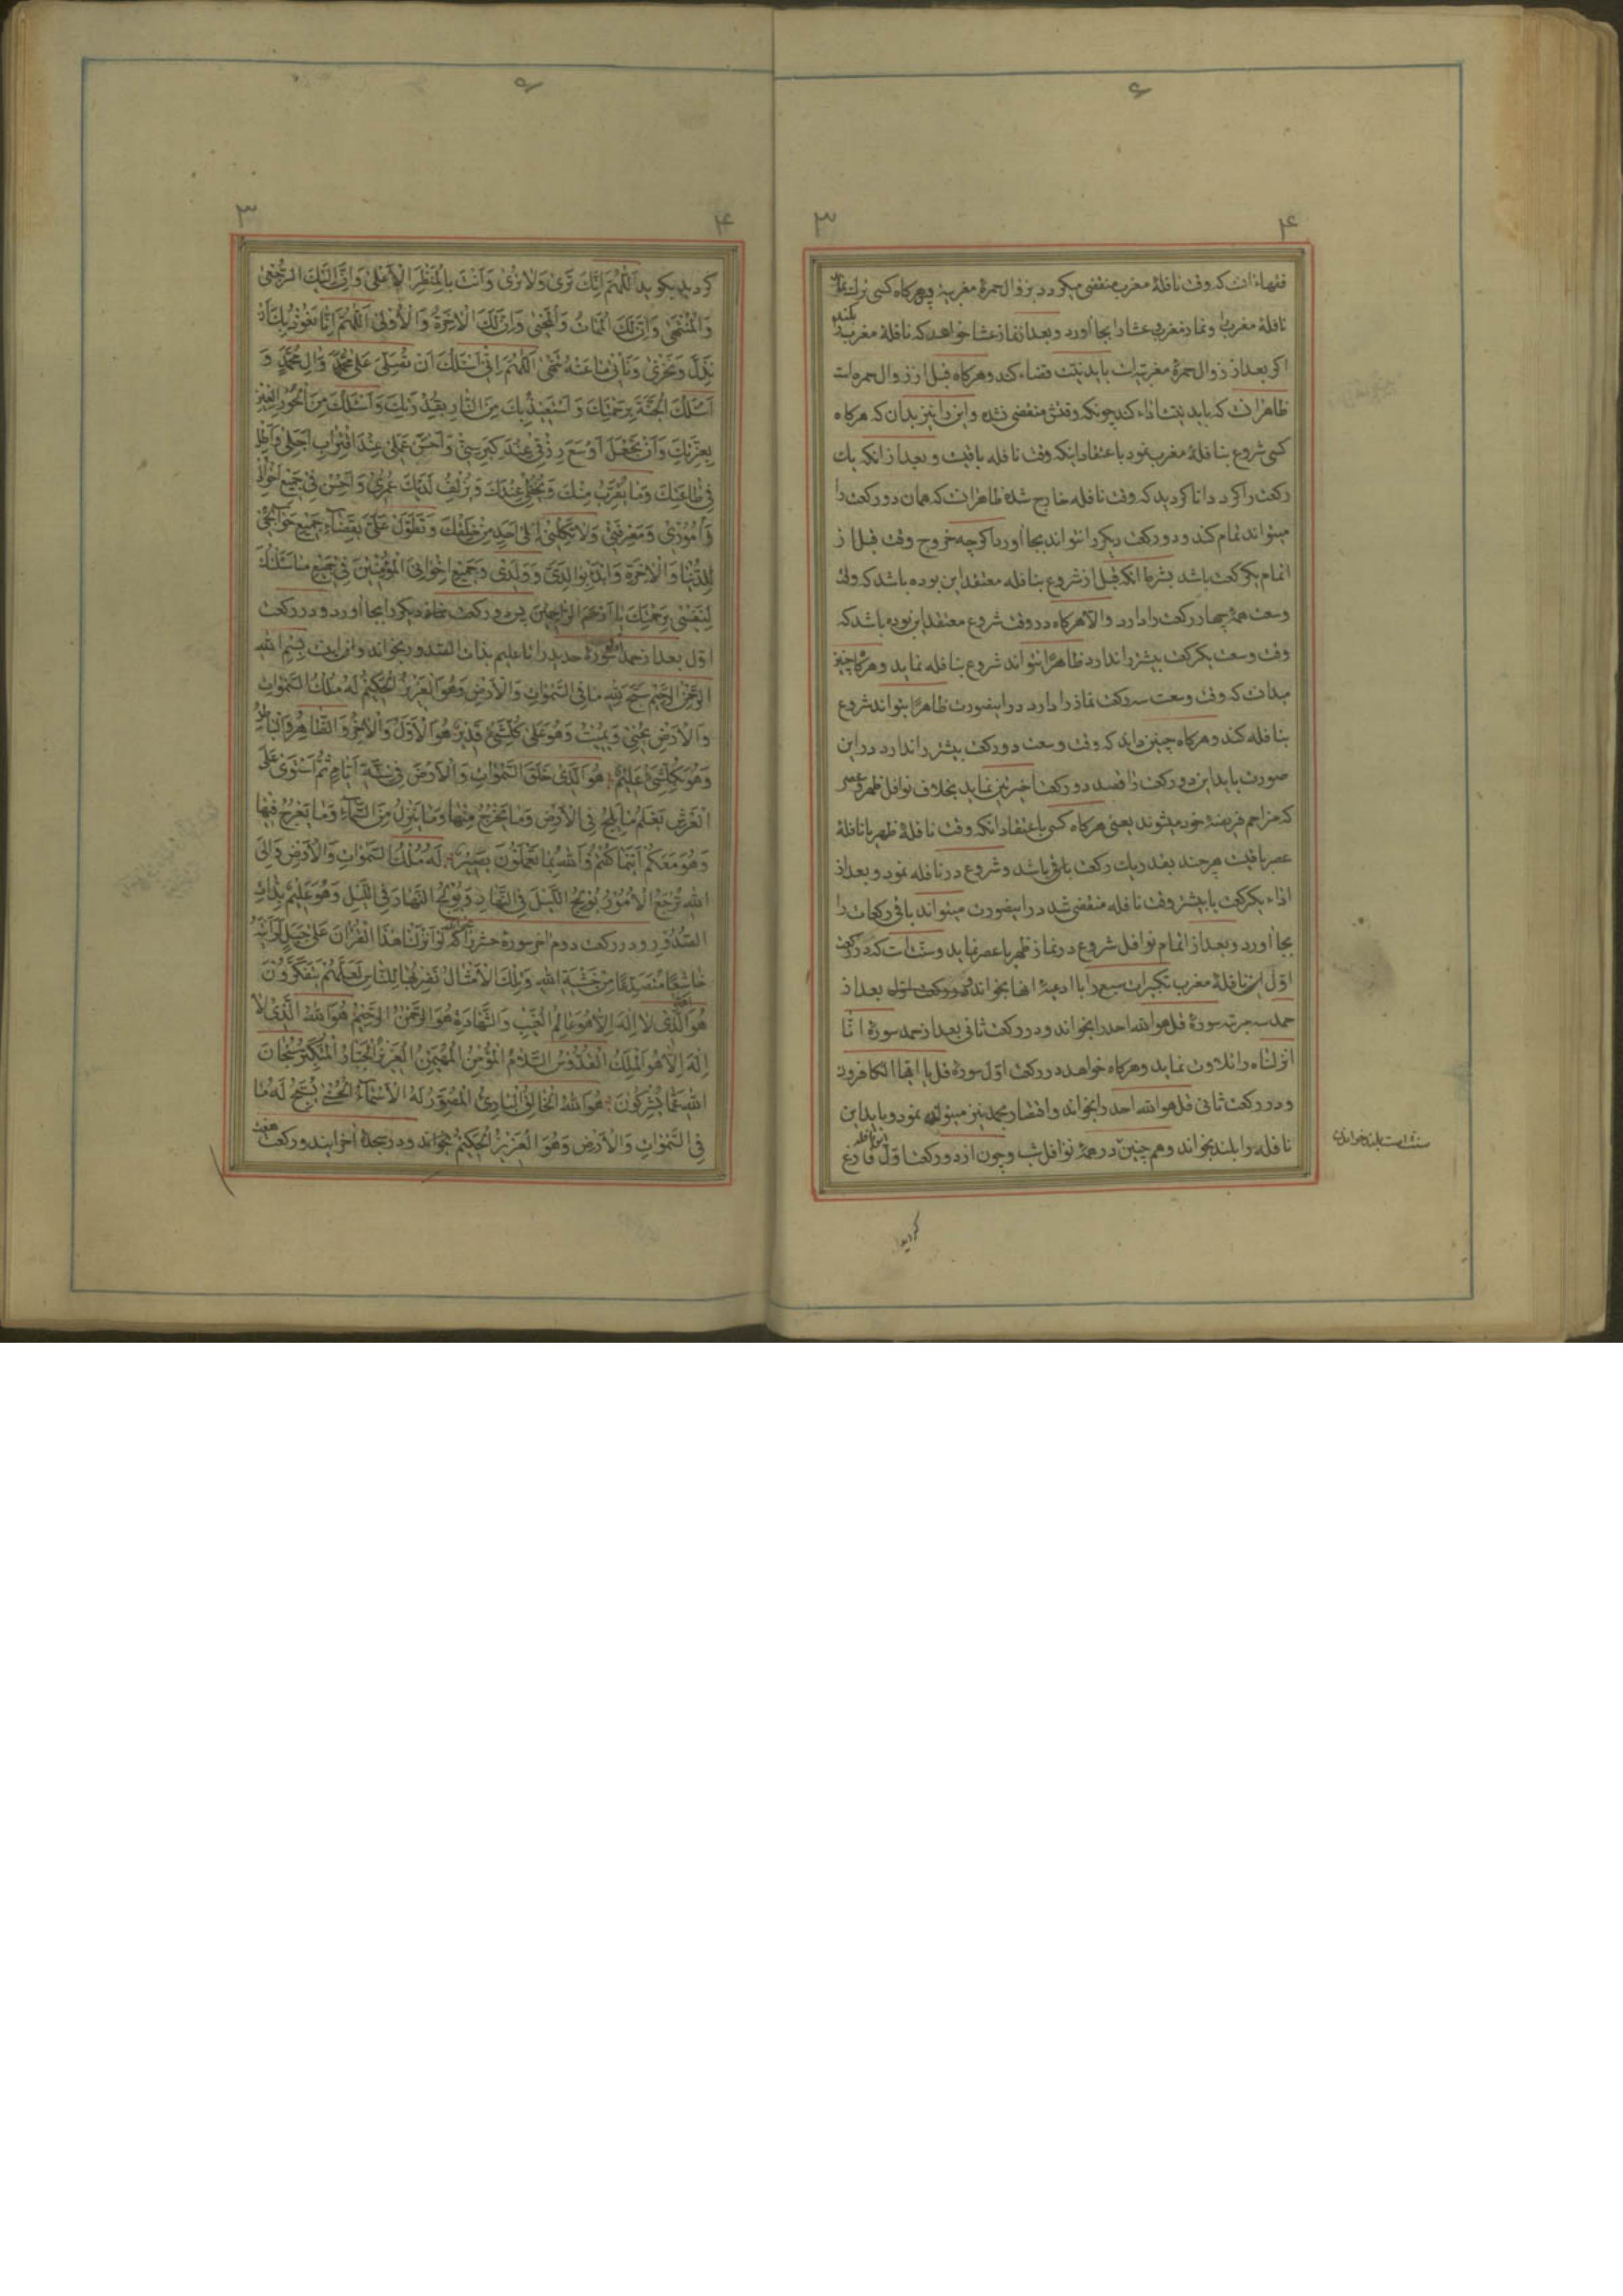 ۶
۳ ۴
فقهاء انست که وقت نافلهٔ مغرب منقضی میگردد بزوال حمرهٔ مغربیه و هرکاه کسی ترک نماز
نافلهٔ مغرب را و نماز مغرب و عشا را بجا آورد و بعد از نماز عشا خواهد که نافلهٔ مغرب را بکند
اکر بعد از زوال حمرهٔ مغربیه است باید نیت قضاء کند و هرکاه قبل از زوال حمره است
ظاهر انست که باید نیت اداء کند چونکه وقتش منقضی نشده و این را نیز بدان که هرکاه
کسی شروع بنافلهٔ مغرب نمود باعتقاد اینکه وقت نافله باقیست و بعد از انکه یک
رکعت را کرد دانا کردید که وقت نافله خارج شده ظاهر انست که همان دو رکعت را
میتواند تمام کند و دو رکعت دیکر را نتواند بجا آورد اکرچه خروج وقت قبل از
اتمام یکرکعت باشد بشرط انکه قبل از شروع بنافله معتقد این بوده باشد که وقت
وسعت همهٔ چهار رکعت را دارد و الا هرکاه در وقت شروع معتقد این بوده باشد که
وقت وسعت یکرکعت بیشتر ندارد ظاهرًا نتواند شروع بنافله نماید و هرکاه چنین
میدانست که وقت وسعت سه رکعت نماز را دارد در اینصورت ظاهرًا بتواند شروع
بنافله کند و هرکاه چنین داند که وقت وسعت دو رکعت بیشتر ندارد در این
صورت باید این دو رکعت را قصد دو رکعت اخیرتین نماید بخلاف نوافل ظهر و عصر
که مزاحم فریضهٔ خود میشوند یعنی هرکاه کسی باعتقاد انکه وقت نافلهٔ ظهر یا نافلهٔ
عصر باقیست هرچند بقدر یک رکعت باقی باشد و شروع در نافله نمود و بعد از
اداء یکرکعت یا بیشتر وقت نافله منقضی شد در اینصورت میتواند باقی رکعات را
بجا آورد و بعد از اتمام نوافل شروع در نماز ظهر یا عصر نماید و سنت است که در رکعت
اوّل این نافلهٔ مغرب تکبیرات سبع را با ادعیهٔ انها بخواند و در رکعت اوّل بعد از
حمد سه مرتبه سورهٔ قل هو الله احد را بخواند و در رکعت ثانی بعد از حمد سورهٔ انّا
انزلناه را تلاوت نماید و هرکاه خواهد در رکعت اوّل سورهٔ قل یا ایّها الکافرون
و در رکعت ثانی قل هو الله احد را بخواند و اقتصار بحمد نیز میتواند نمود و باید این
نافله را بلند بخواند و هم چنین در همهٔ نوافل شب و چون از دو رکعت اوّل فارغ
کردید
۶
۳ ۴
کردید بکوید اَللّهُمَّ اِنَّكَ تَرىٰ وَلا تُرىٰ وَاَنْتَ بِالْمَنْظَرِ الْاَعْلىٰ وَاِنَّ اِلَيْكَ الرُّجْعىٰ
وَالْمُنْتَهىٰ وَاِنَّ لَكَ الْمَمٰاتَ وَالْمَحْيىٰ وَاِنَّ لَكَ الْاٰخِرَةَ وَالْاُولىٰ اَللّهُمَّ اِنّٰا نَعُوذُ بِكَ اَنْ
نَذِلَّ وَنَخْزىٰ وَنَأْتِيَ مٰا عَنْهُ تَنْهىٰ اَللّهُمَّ اِنّى اَسْئَلُكَ اَنْ تُصَلِّىَ عَلىٰ مُحَمَّدٍ وَاٰلِ مُحَمَّدٍ وَ
اَسْئَلُكَ الْجَنَّةَ بِرَحْمَتِكَ وَاَسْتَعيذُ بِكَ مِنَ النّٰارِ بِقُدْرَتِكَ وَاَسْئَلُكَ مِنَ الْحُورِ الْعينِ
بِعِزَّتِكَ وَاَنْ تَجْعَلَ اَوْسَعَ رِزْقى عِنْدَ كِبَرِ سِنّى وَاَحْسَنَ عَمَلى عِنْدَ اقْتِرٰابِ اَجَلى وَاَطِلْ
فى طٰاعَتِكَ وَمٰا يُقَرِّبُ مِنْكَ وَيُحْظى عِنْدَكَ وَيُزْلِفُ لَدَيْكَ عُمْرى وَاَحْسِنْ فى جَميعِ اَحْوٰالى
وَاُمُورى وَمَعْرِفَتى وَلا تَكِلْنى اِلىٰ اَحَدٍ مِنْ خَلْقِكَ وَتَطَوَّلْ عَلَىَّ بِقَضٰاءِ جَميعِ حَوٰائِجى
لِلدُّنْيٰا وَالْاٰخِرَةِ وَابْدَأْ بِوٰالِدَىَّ وَوَلَدى وَجَميعِ اِخْوٰانِىَ الْمُؤْمِنينَ فى جَميعِ مٰا سَئَلْتُكَ
لِنَفْسى بِرَحْمَتِكَ يٰا اَرْحَمَ الرّٰاحِمينَ پس دو رکعت نماز دیکر را بجا آورد و در رکعت
اوّل بعد از حمد سورهٔ حدید را تا علیم بذات الصّدور بخواند و آن اینست بِسْمِ اللهِ
الرَّحْمٰنِ الرَّحيمِ سَبَّحَ لِلّٰهِ مٰا فِى السَّمٰوٰاتِ وَالْاَرْضِ وَهُوَ الْعَزيزُ الْحَكيمُ لَهُ مُلْكُ السَّمٰوٰاتِ
وَالْاَرْضِ يُحْيى وَيُميتُ وَهُوَ عَلىٰ كُلِّ شَىْءٍ قَديرٌ هُوَ الْاَوَّلُ وَالْاٰخِرُ وَالظّٰاهِرُ وَالْبٰاطِنُ
وَهُوَ بِكُلِّ شَىْءٍ عَليمٌ هُوَ الَّذى خَلَقَ السَّمٰوٰاتِ وَالْاَرْضَ فى سِتَّةِ اَيّٰامٍ ثُمَّ اسْتَوىٰ عَلَى
الْعَرْشِ يَعْلَمُ مٰا يَلِجُ فِى الْاَرْضِ وَمٰا يَخْرُجُ مِنْهٰا وَمٰا يَنْزِلُ مِنَ السَّمٰاءِ وَمٰا يَعْرُجُ فيهٰا
وَهُوَ مَعَكُمْ اَيْنَمٰا كُنْتُمْ وَاللهُ بِمٰا تَعْمَلُونَ بَصيرٌ لَهُ مُلْكُ السَّمٰوٰاتِ وَالْاَرْضِ وَاِلَى
اللهِ تُرْجَعُ الْاُمُورُ يُولِجُ اللَّيْلَ فِى النَّهٰارِ وَيُولِجُ النَّهٰارَ فِى اللَّيْلِ وَهُوَ عَليمٌ بِذٰاتِ
الصُّدُورِ و در رکعت دوم آخر سورهٔ حشر را که لَوْ اَنْزَلْنٰا هٰذَا الْقُرْاٰنَ عَلىٰ جَبَلٍ لَرَاَيْتَهُ
خٰاشِعًا مُتَصَدِّعًا مِنْ خَشْيَةِ اللهِ وَتِلْكَ الْاَمْثٰالُ نَضْرِبُهٰا لِلنّٰاسِ لَعَلَّهُمْ يَتَفَكَّرُونَ
هُوَ اللهُ الَّذى لا اِلٰهَ اِلّا هُوَ عٰالِمُ الْغَيْبِ وَالشَّهٰادَةِ هُوَ الرَّحْمٰنُ الرَّحيمُ هُوَ اللهُ الَّذى لا
اِلٰهَ اِلّا هُوَ الْمَلِكُ الْقُدُّوسُ السَّلامُ الْمُؤْمِنُ الْمُهَيْمِنُ الْعَزيزُ الْجَبّٰارُ الْمُتَكَبِّرُ سُبْحٰانَ
اللهِ عَمّٰا يُشْرِكُونَ هُوَ اللهُ الْخٰالِقُ الْبٰارِئُ الْمُصَوِّرُ لَهُ الْاَسْمٰاءُ الْحُسْنىٰ يُسَبِّحُ لَهُ مٰا
فِى السَّمٰوٰاتِ وَالْاَرْضِ وَهُوَ الْعَزيزُ الْحَكيمُ بخواند و در سجدهٔ آخر این دو رکعت هفت